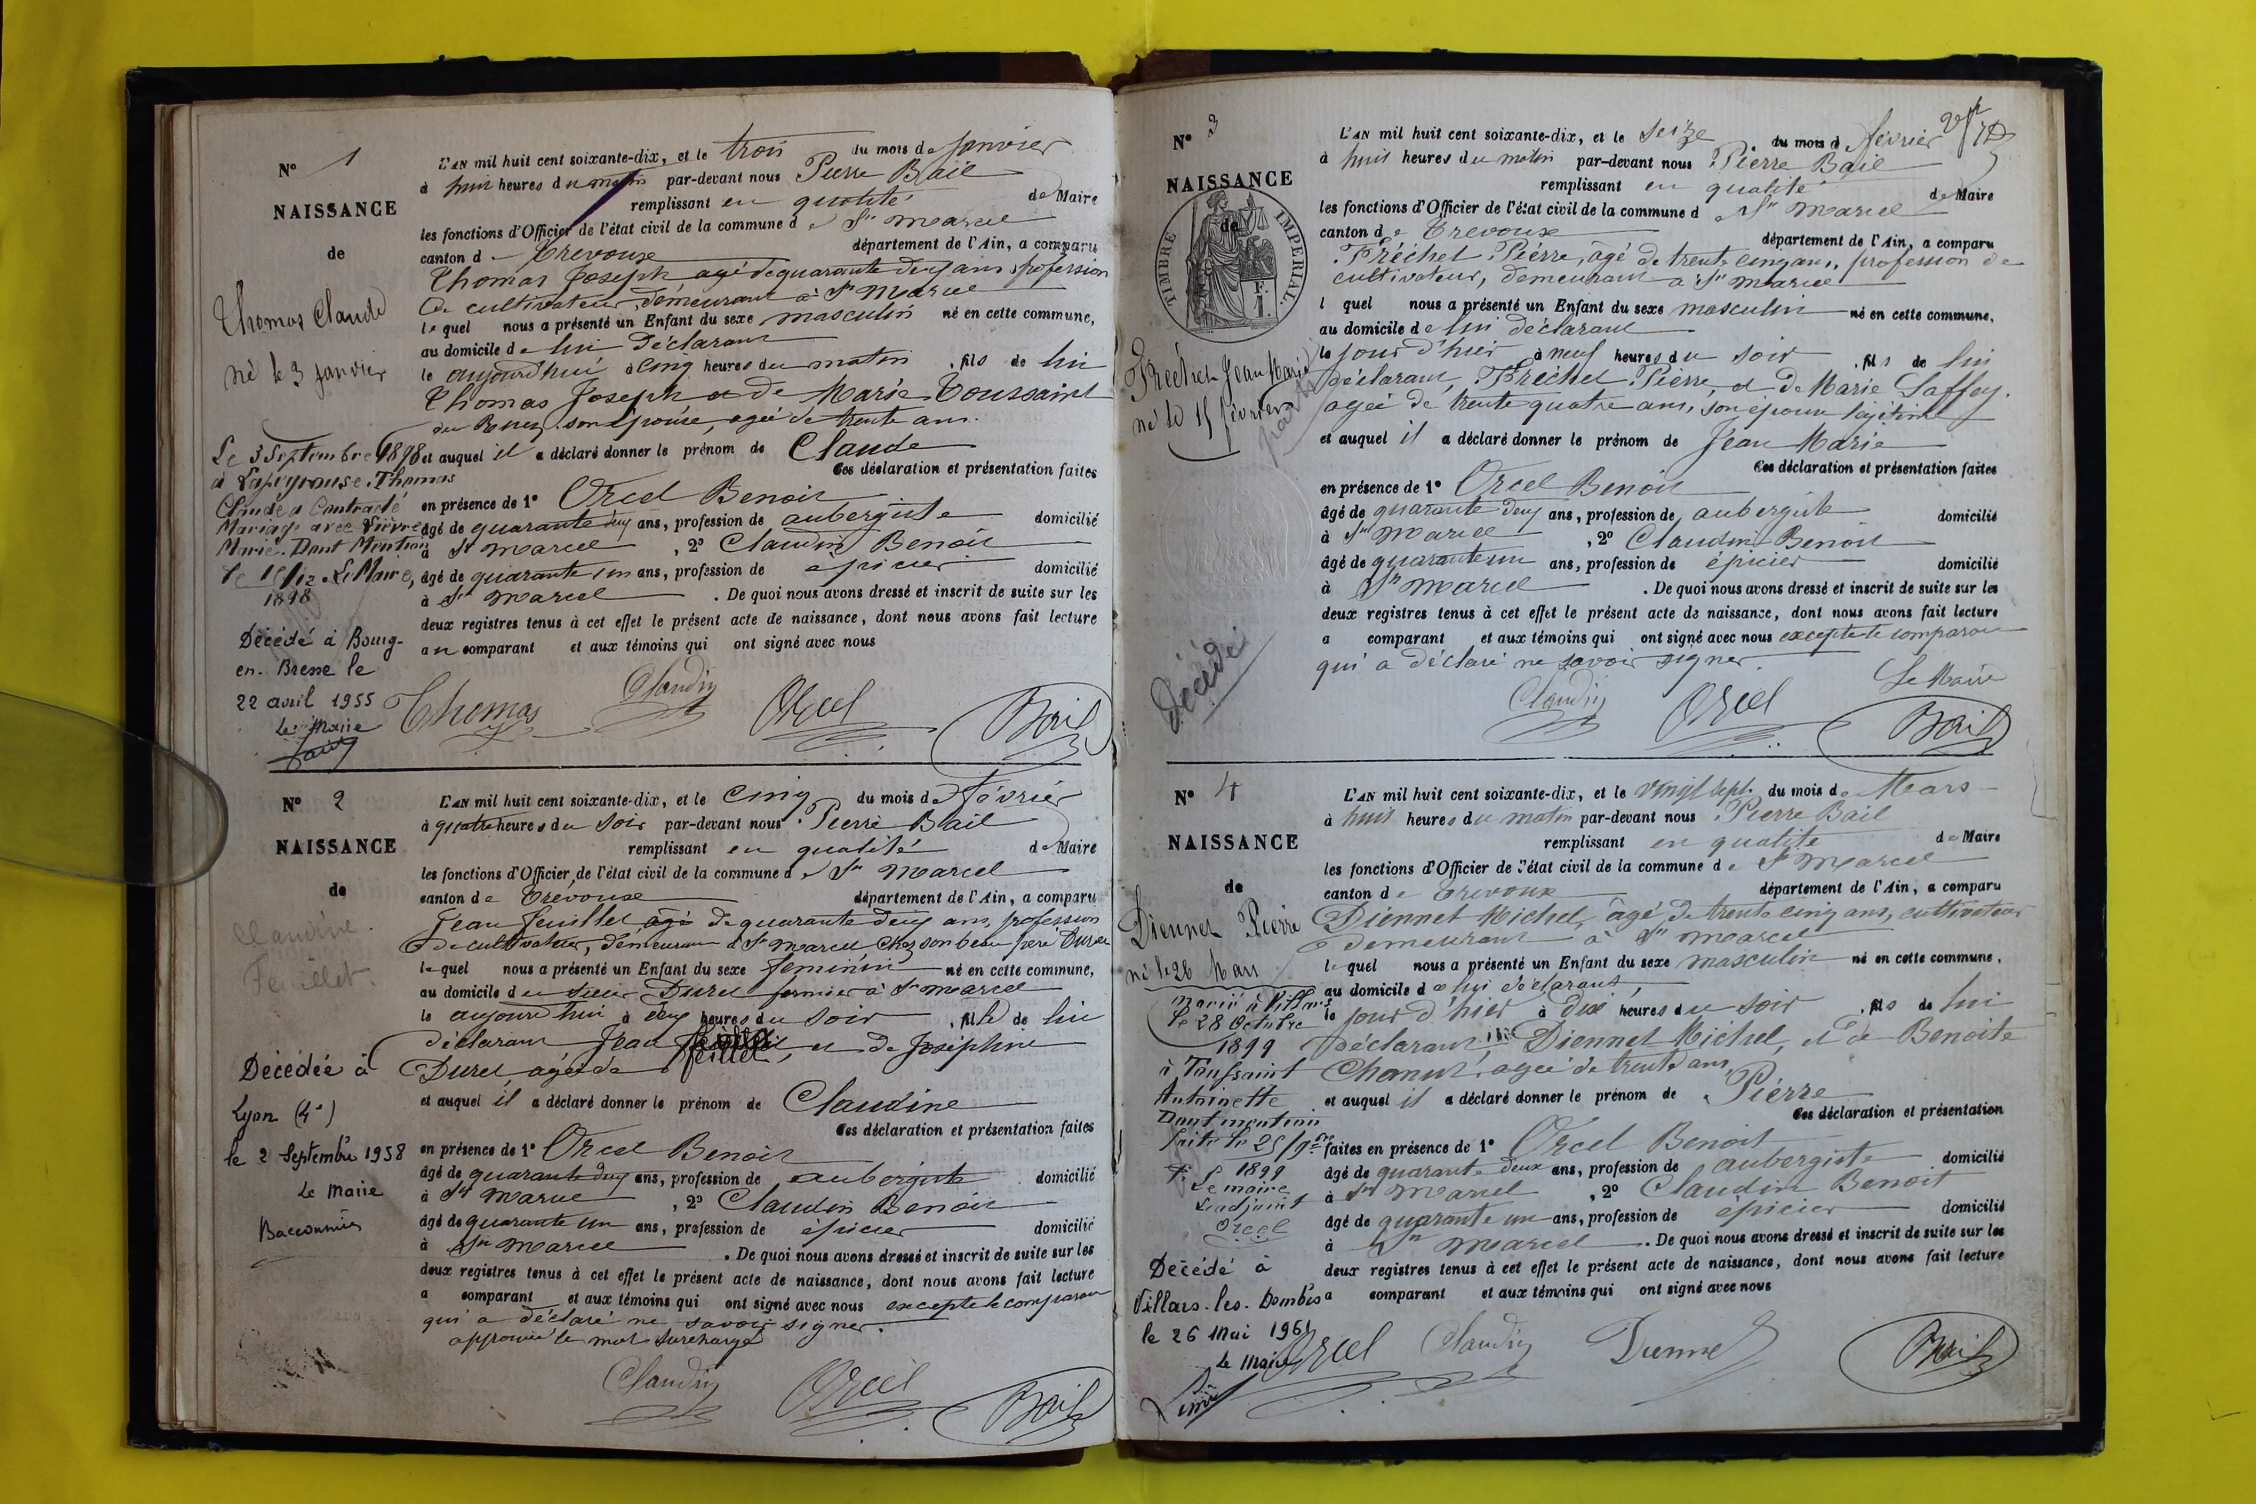 N° 1
NAISSANCE
de
Thomas Claude
né le 3 janvier
Le 3 Septembre 1898
à Lapeyrouse Thomas
Claude a Contracté
Mariage avec
Marie. Dont Mention
Le Maire,
1898
Décédé à Bourg-
en-Bresse le
22 avril 1955
Le Maire
L'AN mil huit cent soixante-dix, et le trois du mois de janvier
à huit heures du matin par-devant nous Pierre Bail
remplissant en qualité de Maire
les fonctions d'Officier de l'état civil de la commune de St Marcel
canton de Trevoux département de l'Ain, a comparu
Thomas Joseph agé de quarante deux ans profession
de cultivateur, demeurant à St Marcel
lequel nous a présenté un Enfant du sexe masculin né en cette commune,
au domicile de lui déclarant
le aujourd'hui à cinq heures du matin, fils de lui
Thomas Joseph et de Marie Toussaint
son épouse, agée de trente ans.
et auquel il a déclaré donner le prénom de Claude
Ces déclaration et présentation faites
en présence de 1° Orcel Benoit
âgé de quarante deux ans, profession de aubergiste domicilié
à St Marcel, 2° Claudin Benoit
âgé de quarante un ans, profession de épicier domicilié
à St Marcel. De quoi nous avons dressé et inscrit de suite sur les
deux registres tenus à cet effet le présent acte de naissance, dont nous avons fait lecture
au comparant et aux témoins qui ont signé avec nous
Thomas Claudin Orcel Bail
N° 2
NAISSANCE
de
Claudine
Feuillet.
Décédée à
Lyon (4e)
le 2 Septembre 1958
Le Maire
L'AN mil huit cent soixante-dix, et le cinq du mois de Février
à quatre heures du soir par-devant nous Pierre Bail
remplissant en qualité de Maire
les fonctions d'Officier de l'état civil de la commune de St Marcel
canton de Trévoux département de l'Ain, a comparu
Jean Feuillet âgé de quarante deux ans, profession
de cultivateur, demeurant à St Marcel chez son beau père Duret
lequel nous a présenté un Enfant du sexe feminin né en cette commune,
au domicile du sieur Duret fermier à St Marcel
le aujourd'hui à deux heures du soir, fille de lui
déclarant Jean feillet, et de Joséphine
Duret, agée de
et auquel il a déclaré donner le prénom de Claudine
Ces déclaration et présentation faites
en présence de 1° Orcel Benoit
âgé de quarante deux ans, profession de aubergiste domicilié
à St Marcel, 2° Claudin Benoit
âgé de quarante un ans, profession de épicier domicilié
à St Marcel. De quoi nous avons dressé et inscrit de suite sur les
deux registres tenus à cet effet le présent acte de naissance, dont nous avons fait lecture
a comparant et aux témoins qui ont signé avec nous excepté le comparant
qui a déclaré ne savoir signer.
approuvé le mot surchargé
Claudin Orcel Bail
N° 3
NAISSANCE
de
TIMBRE IMPERIAL.
Fréchet Jean Marie
né le 15 février
Décédé
L'AN mil huit cent soixante-dix, et le seize du mois de février
à huit heures du matin par-devant nous Pierre Bail
remplissant en qualité de Maire
les fonctions d'Officier de l'état civil de la commune de St Marcel
canton de Trevoux département de l'Ain, a comparu
Fréchet Pierre, âgé de trente cinq ans, profession de
cultivateur, demeurant à St Marcel
l quel nous a présenté un Enfant du sexe masculin né en cette commune,
au domicile de lui déclarant
le jour d'hier à neuf heures du soir, fils de lui
déclarant, Fréchet Pierre, et de Marie Laffay,
agée de trente quatre ans, son épouse légitime
et auquel il a déclaré donner le prénom de Jean Marie
Ces déclaration et présentation faites
en présence de 1° Orcel Benoit
âgé de quarante deux ans, profession de aubergiste domicilié
à St Marcel, 2° Claudin Benoit
âgé de quarante un ans, profession de épicier domicilié
à St Marcel. De quoi nous avons dressé et inscrit de suite sur les
deux registres tenus à cet effet le présent acte de naissance, dont nous avons fait lecture
a comparant et aux témoins qui ont signé avec nous excepté le comparant
qui a déclaré ne savoir signer.
Le Maire
Claudin Orcel Bail
N° 4
NAISSANCE
de
Diennet Pierre
né le 26 Mars
Marié à Villars
le 28 Octobre
1899
à Toussaint
Antoinette
Dont mention
faite le 25/9bre
1899
Le maire
L'adjoint
Orcel
Décédé à
Villars-les-Dombes
le 26 Mai 1961
Le Maire
L'AN mil huit cent soixante-dix, et le vingt sept du mois de Mars
à huit heures du matin par-devant nous Pierre Bail
remplissant en qualité de Maire
les fonctions d'Officier de l'état civil de la commune de St Marcel
canton de Trevoux département de l'Ain, a comparu
Diennet Michel, âgé de trente cinq ans, cultivateur
demeurant à St Marcel
lequel nous a présenté un Enfant du sexe masculin né en cette commune,
au domicile de lui déclarant,
le jour d'hier à dix heures du soir, fils de lui
déclarant, Diennet Michel, et de Benoite
Chanut, agée de trente ans,
et auquel il a déclaré donner le prénom de Pierre
Ces déclaration et présentation
faites en présence de 1° Orcel Benoit
âgé de quarante deux ans, profession de aubergiste domicilié
à St Marcel, 2° Claudin Benoit
âgé de quarante un ans, profession de épicier domicilié
à St Marcel. De quoi nous avons dressé et inscrit de suite sur les
deux registres tenus à cet effet le présent acte de naissance, dont nous avons fait lecture
a comparant et aux témoins qui ont signé avec nous
Orcel Claudin Dienne Bail